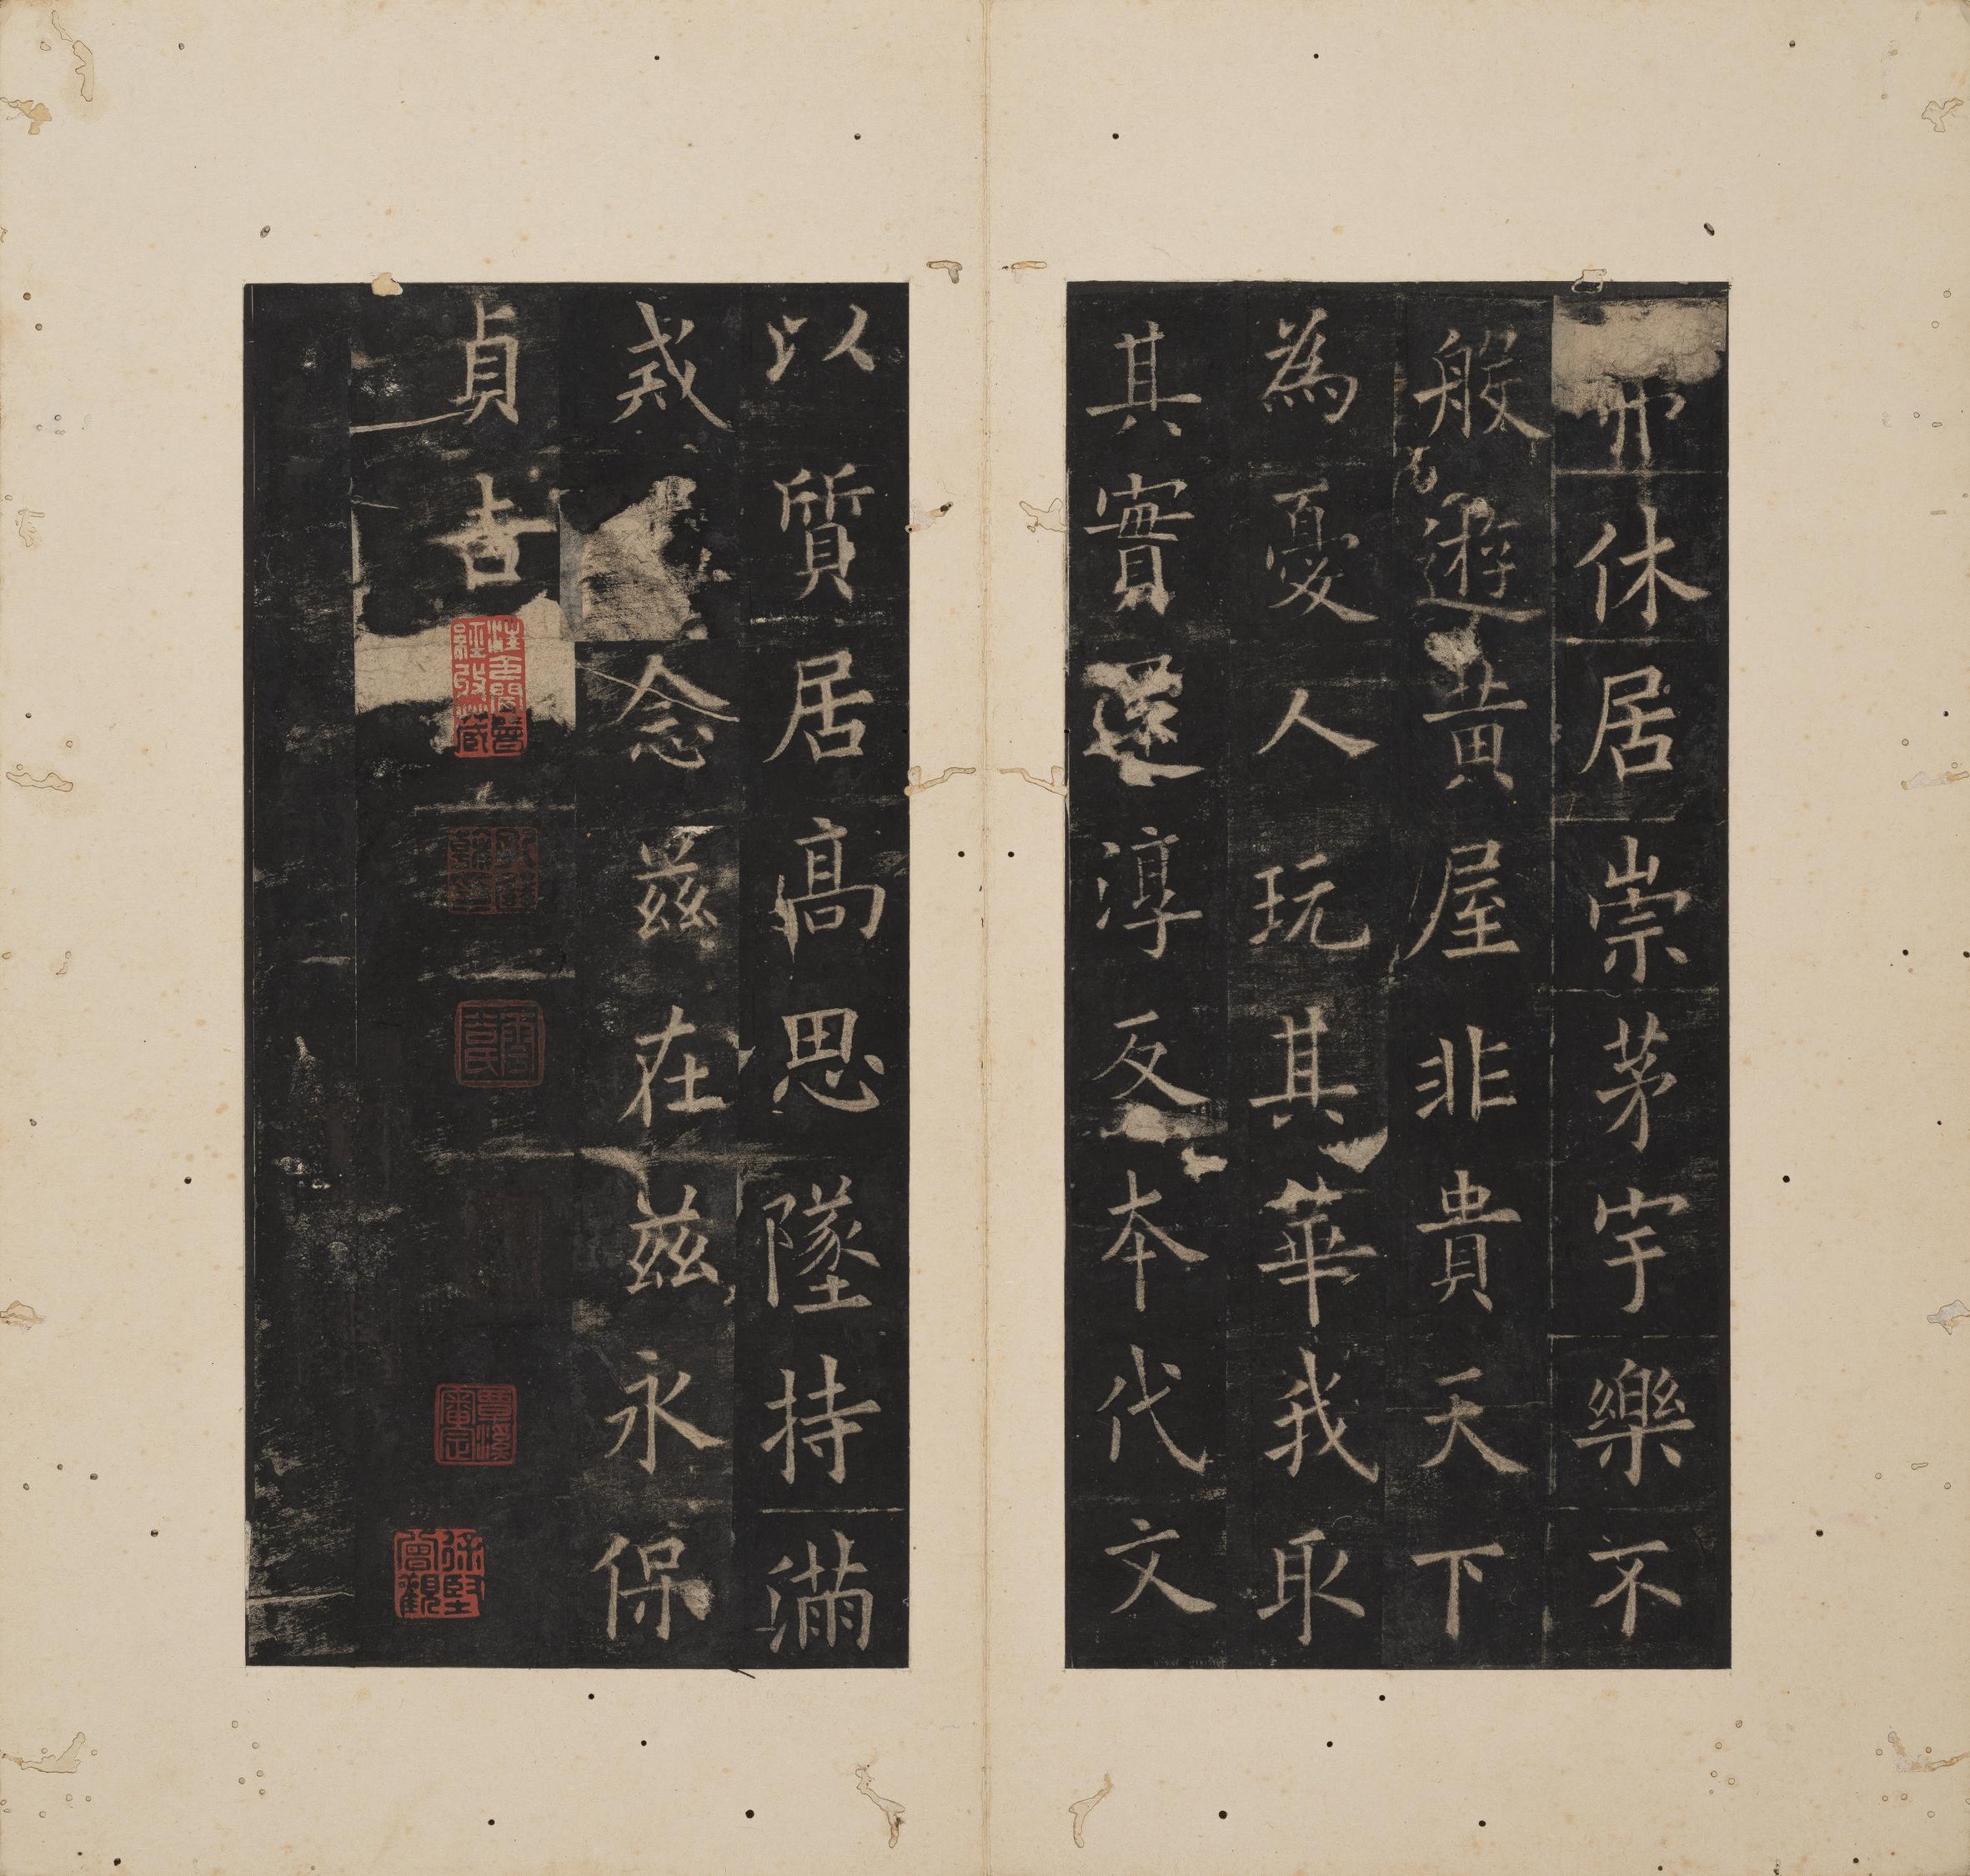 弗休居崇茅宇樂不
般遊黃屋非貴天下
為憂人玩其華我取
其實還淳反本代文
以質居高思墜持滿
戒念茲在茲永保
貞吉
覃溪審定